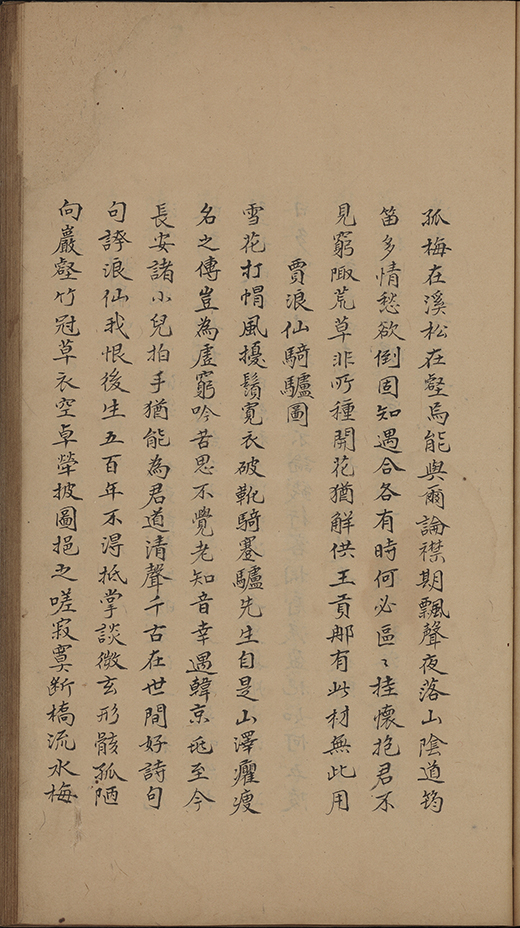 孤梅在溪松在壑烏能與爾論襟期飄聲夜落山陰道筠
笛多情愁欲倒固知遇合各有時何必區〻挂懷抱君不
見窮陬荒草非所種開花猶解供王貢那有此材無此用
賈浪仙騎驢圖
雪花打帽風擾鬚寬衣破靴騎蹇驢先生自是山澤癯瘦
名之傳豈為虛窮吟苦思不覺老知音幸遇韓京兆至今
長安諸小兒拍手猶能為君道清聲千古在世間好詩句
句誇浪仙我恨後生五百年不得抵掌談微玄形骸孤陋
向巖壑竹冠草衣空卓犖披圖挹之嗟寂寞斷橋流水梅